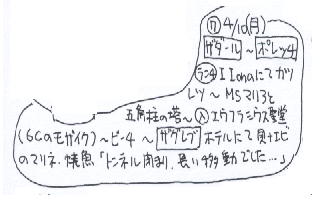 ⑰ 4/10(月)
ザダール ~ ポレッチ
ランチ IIonaにてカツ
レツ ~ MSマリ3と
五角柱の塔~ 入 エウフラシウス聖堂
(6Cのモザイク) ~ ピーチ ~ ザグレブ ホテルにて貝+エビ
のマリネ、焼魚「トンネル閉まり、長い移動でした…」